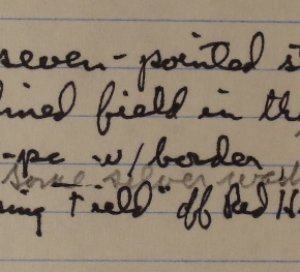 seven-pointed s
lined field in th
-pc w/border
Some silver wash
ring Field" off Red H